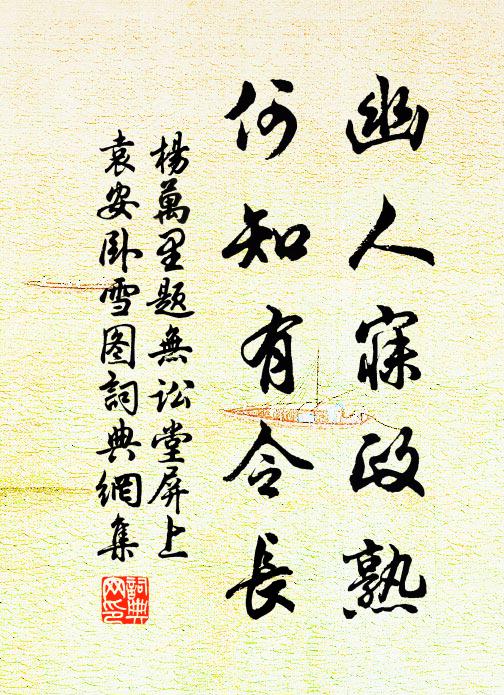 幽人寐政熟
何知有令長
楊萬里題無訟堂屏上
袁安卧雪图詞典網集
詞典网印